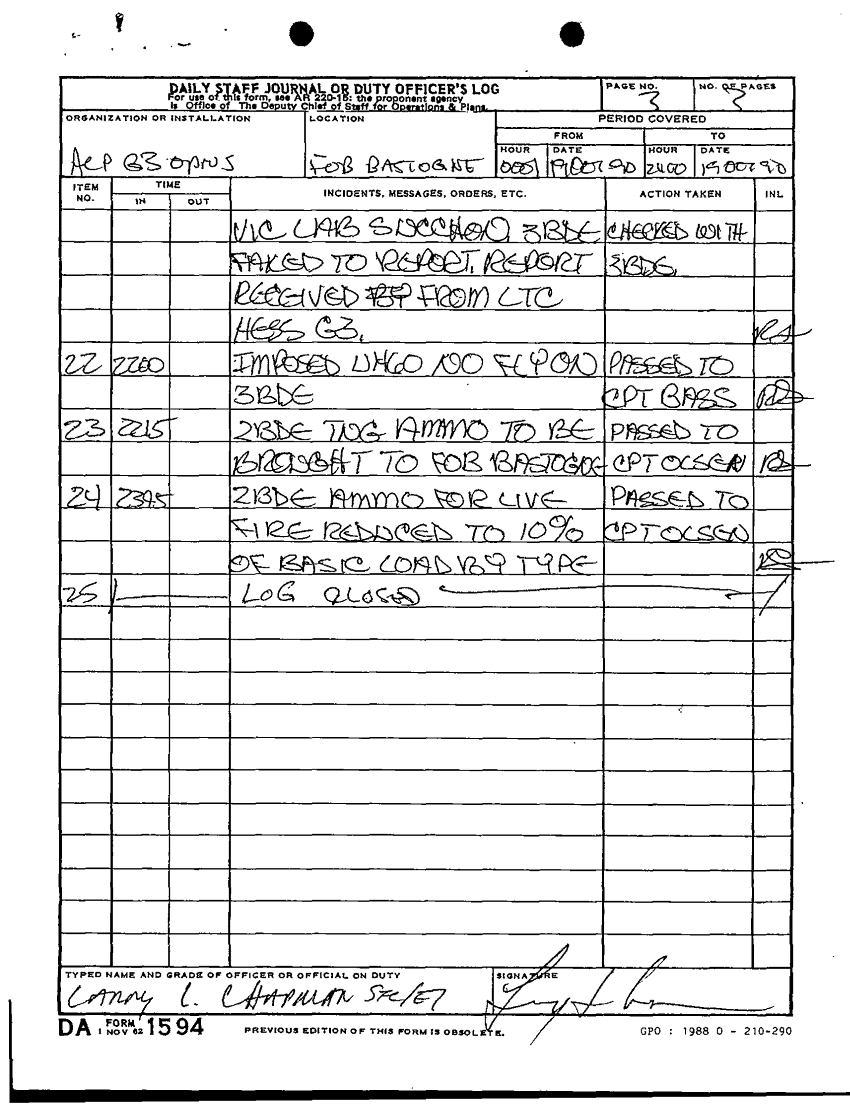 DAILY STAFF JOURNAL OR DUTY OFFICER'S LOG
For use of this form, see AR 220-15; the proponent agency
is Office of The Deputy Chief of Staff for Operations & Plans.
PAGE NO.
3
NO. OF PAGES
3
ORGANIZATION OR INSTALLATION
ACP G3 OPNS
LOCATION
FOB BASTOGNE
PERIOD COVERED
FROM TO
HOUR DATE HOUR DATE
0001 19 OCT 90 2400 19 OCT 90
ITEM NO. TIME IN OUT INCIDENTS, MESSAGES, ORDERS, ETC. ACTION TAKEN INL
VIC 3BDE CHECKED WITH
FAILED TO REPORT. REPORT 3BDE
RECEIVED FROM LTC
HESS G3.
22 2200 IMPOSED UH60 NO FLY ON PASSED TO
3BDE CPT BASS
23 2215 2BDE TNG AMMO TO BE PASSED TO
BROUGHT TO FOB BASTOGNE CPT OLSEN
24 2345 2BDE AMMO FOR LIVE PASSED TO
FIRE REDUCED TO 10% CPT OLSEN
OF BASIC LOAD BY TYPE
25 LOG CLOSED
TYPED NAME AND GRADE OF OFFICER OR OFFICIAL ON DUTY
LARRY L. CHAPMAN SFC/E7
SIGNATURE
DA FORM 1 NOV 62 1594
PREVIOUS EDITION OF THIS FORM IS OBSOLETE.
GPO : 1988 O - 210-290